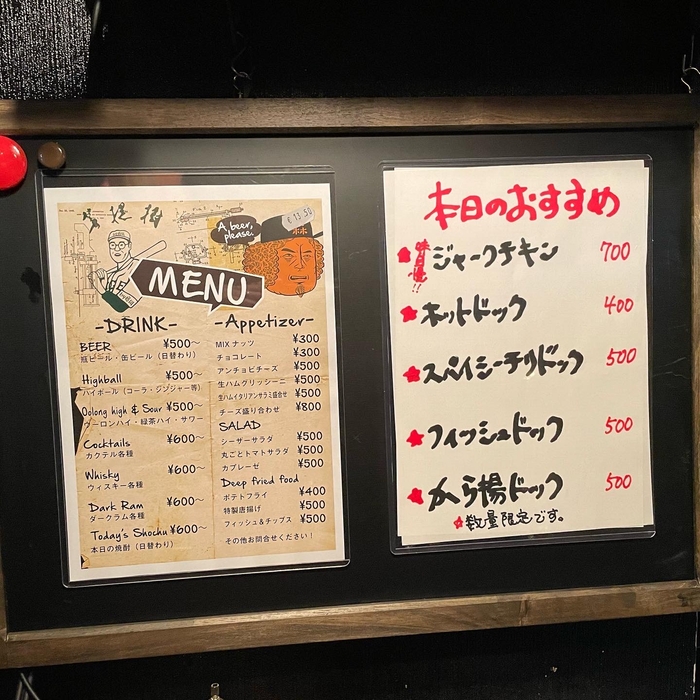 A beer,
please.
MENU
-DRINK-
BEER ¥500～
瓶ビール・缶ビール（日替わり）
Highball ¥500～
ハイボール（コーラ・ジンジャー等）
Oolong high & Sour ¥500～
ウーロンハイ・緑茶ハイ・サワー
Cocktails ¥600～
カクテル各種
Whisky ¥600～
ウィスキー各種
Dark Ram ¥600～
ダークラム各種
Today's Shochu ¥600～
本日の焼酎（日替わり）
-Appetizer-
MIX ナッツ ¥300
チョコレート ¥300
アンチョビチーズ ¥500
生ハムグリッシーニ ¥500
生ハムイタリアンサラミ盛合せ ¥500
チーズ盛り合わせ ¥800
SALAD
シーザーサラダ ¥500
丸ごとトマトサラダ ¥500
カプレーゼ ¥500
Deep fried food
ポテトフライ ¥400
特製唐揚げ ¥500
フィッシュ＆チップス ¥500
その他お問合せください！
本日のおすすめ
味自慢!!
ジャークチキン 700
ホットドック 400
スパイシーチリドック 500
フィッシュドック 500
から揚ドック 500
数量限定です。